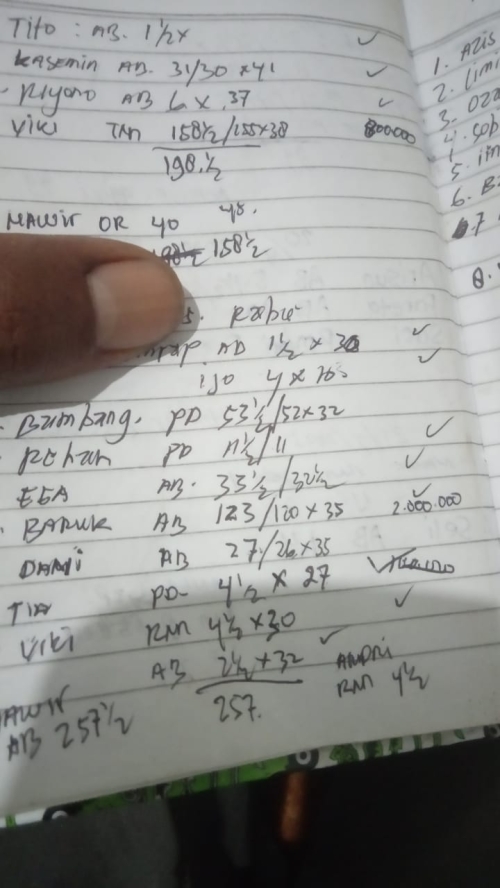 Tito : AB. 1 1/2 x
Kasemin AB. 31/30 x 41
Riyono AB 6 x 37
Viki 158 1/2 / 155 x 38
198. 1/2
MAWIR OR 40 48.
158 1/2
Rabu
AD 1 1/2 x 30
ijo 4 x
Bambang. PD 53 1/2 / 52 x 32
REhan PD 11 1/2 / 11
EGA AB. 33 1/2 / 32 1/2
BARUK AB 123/120 x 35 2.000.000
DAdi AB 27/26 x 35
TIA PD- 4 1/2 x 27
Viki RM 4 1/2 x 30
AB 2 1/2 x 32 ANDRI
257. RM 4 1/2
AB 257 1/2
1. AZIS
2. limi
3. OZZ
4. Sob
5. iin
6. B
7
8.